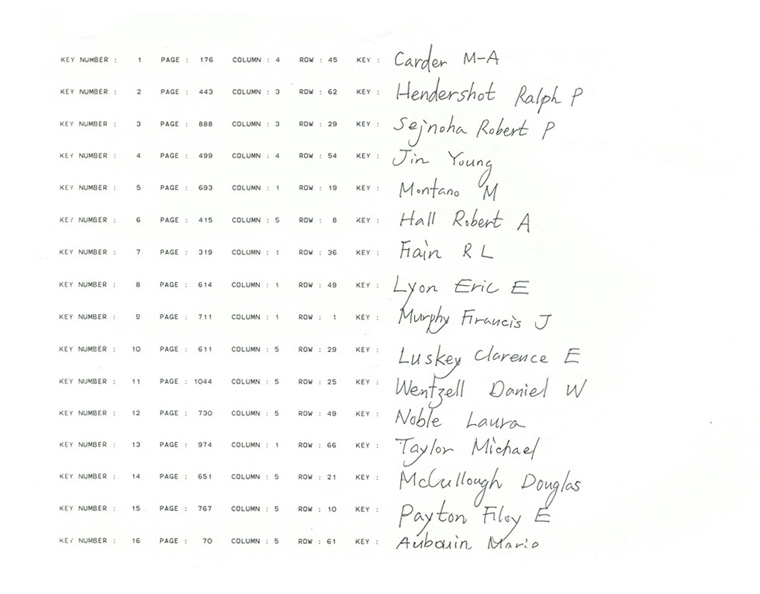 KEY NUMBER : 1 PAGE : 176 COLUMN : 4 ROW : 45 KEY : Carder M-A
KEY NUMBER : 2 PAGE : 443 COLUMN : 3 ROW : 62 KEY : Hendershot Ralph P
KEY NUMBER : 3 PAGE : 888 COLUMN : 3 ROW : 29 KEY : Sejnoha Robert P
KEY NUMBER : 4 PAGE : 499 COLUMN : 4 ROW : 54 KEY : Jin Young
KEY NUMBER : 5 PAGE : 693 COLUMN : 1 ROW : 19 KEY : Montano M
KEY NUMBER : 6 PAGE : 415 COLUMN : 5 ROW : 8 KEY : Hall Robert A
KEY NUMBER : 7 PAGE : 319 COLUMN : 1 ROW : 36 KEY : R L
KEY NUMBER : 8 PAGE : 614 COLUMN : 1 ROW : 49 KEY : Lyon Eric E
KEY NUMBER : 9 PAGE : 711 COLUMN : 1 ROW : 1 KEY : Murphy Francis J
KEY NUMBER : 10 PAGE : 611 COLUMN : 5 ROW : 29 KEY : Luskey Clarence E
KEY NUMBER : 11 PAGE : 1044 COLUMN : 5 ROW : 25 KEY : Wentzell Daniel W
KEY NUMBER : 12 PAGE : 730 COLUMN : 5 ROW : 49 KEY : Noble Laura
KEY NUMBER : 13 PAGE : 974 COLUMN : 1 ROW : 66 KEY : Taylor Michael
KEY NUMBER : 14 PAGE : 651 COLUMN : 5 ROW : 21 KEY : McCullough Douglas
KEY NUMBER : 15 PAGE : 767 COLUMN : 5 ROW : 10 KEY : Payton E
KEY NUMBER : 16 PAGE : 70 COLUMN : 5 ROW : 61 KEY : Aubouin Mario